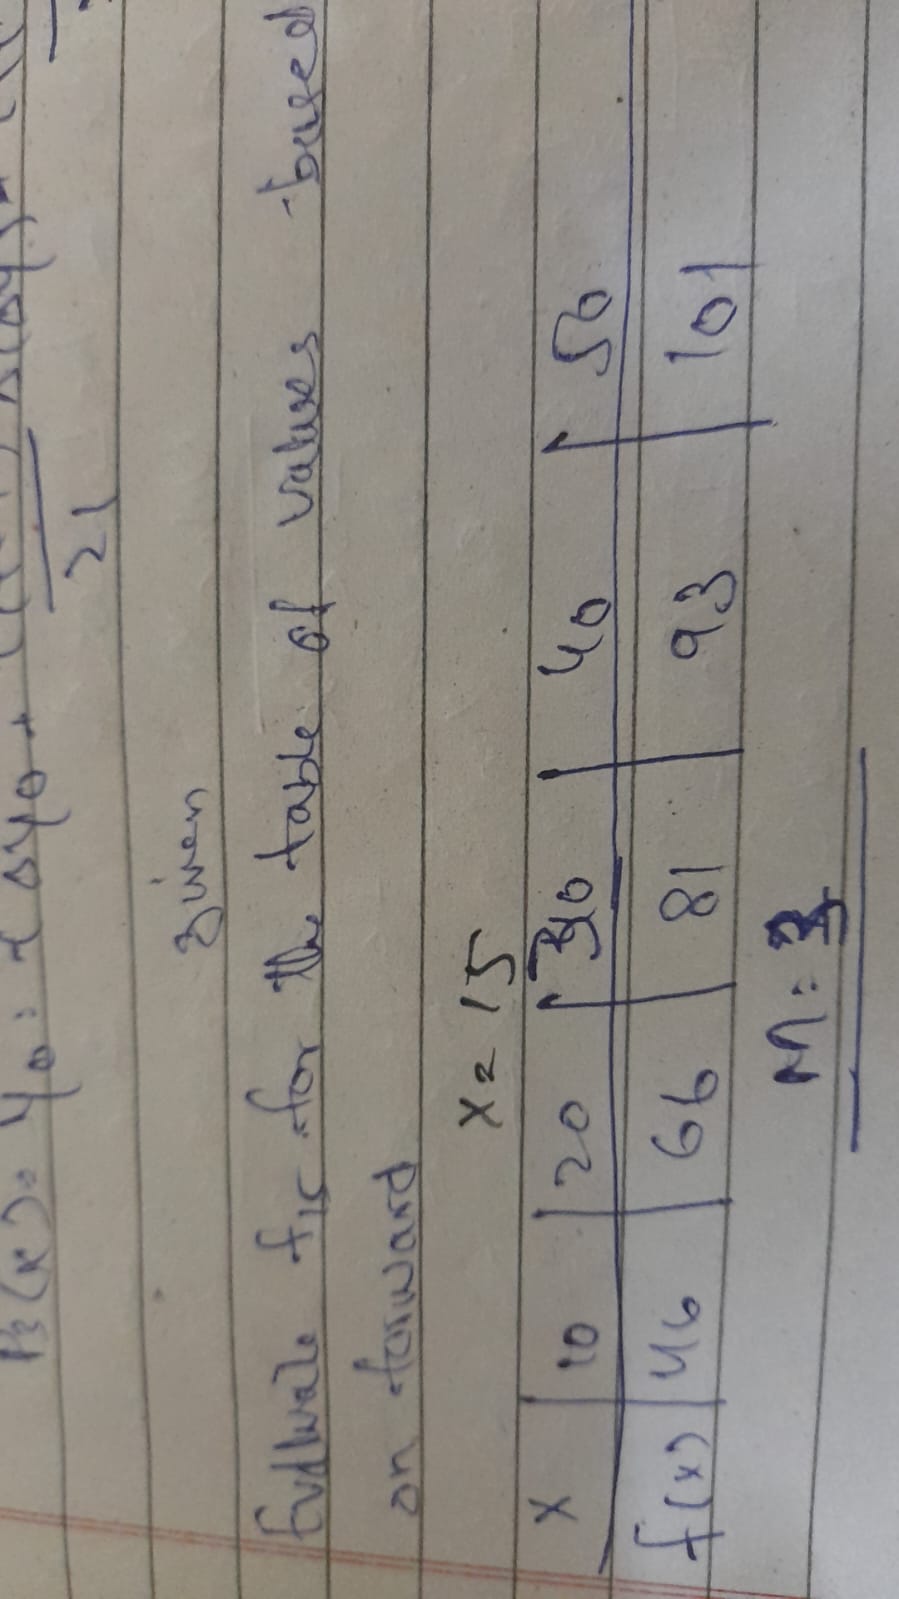 P3(x) = y0 + r Δy0 +
2!
given
Evaluate f15 for the table of values based
on forward
x = 15
x | 10 | 20 | 30 | 40 | 50
f(x) | 46 | 66 | 81 | 93 | 101
n = 3